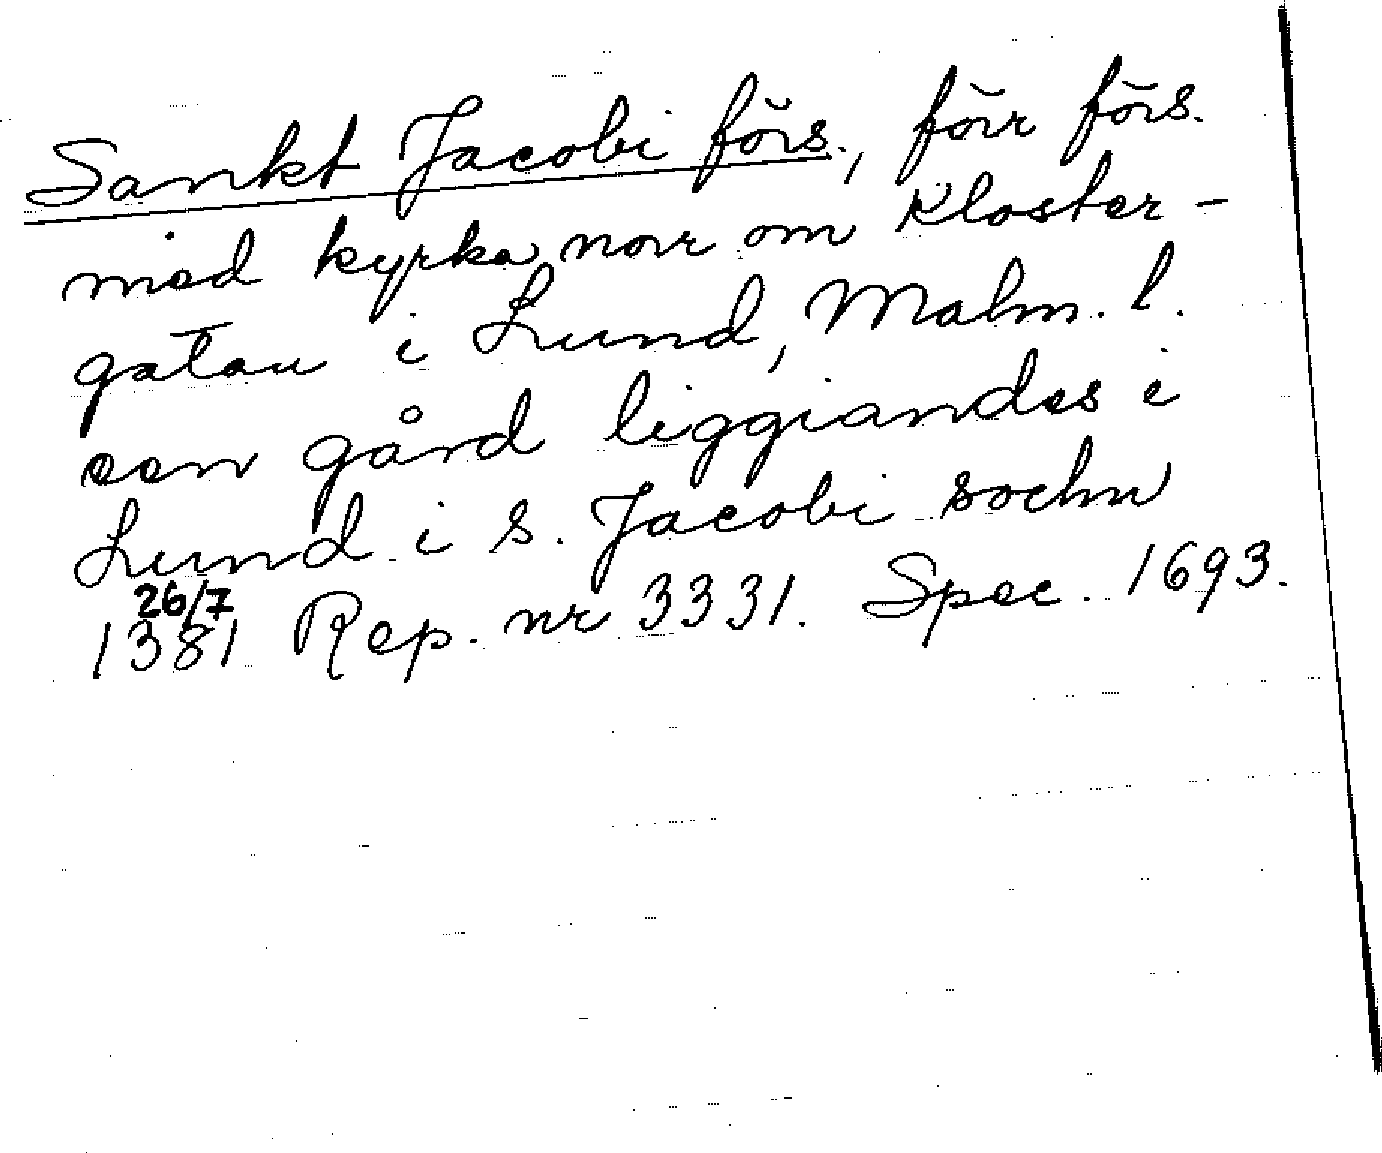 Sankt Jacobi förs., förr förs.
med kyrka norr om Kloster-
gatan i Lund, Malm. l.
een gård liggiandes i
Lund i S. Jacobi sochn
26/7
1381 Rep. nr 3331. Spec. 1693.